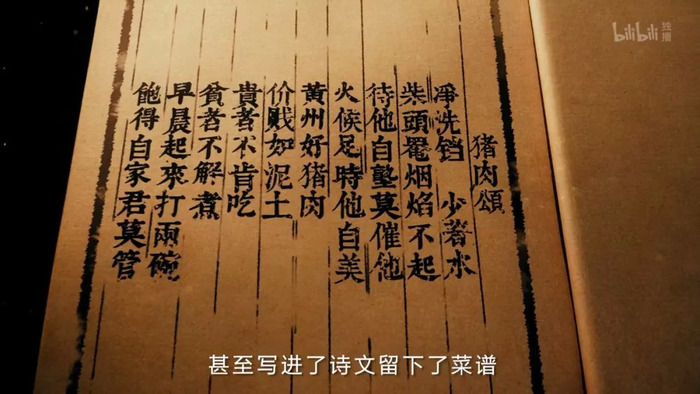 猪肉頌
净洗铛 少著水
柴頭罨烟焰不起
待他自塾莫催他
火候足時他自美
黄州好猪肉
价贱如泥土
貴者不肯吃
貧者不解煮
早晨起來打兩碗
飽得自家君莫管
bilibili 独播
甚至写进了诗文留下了菜谱